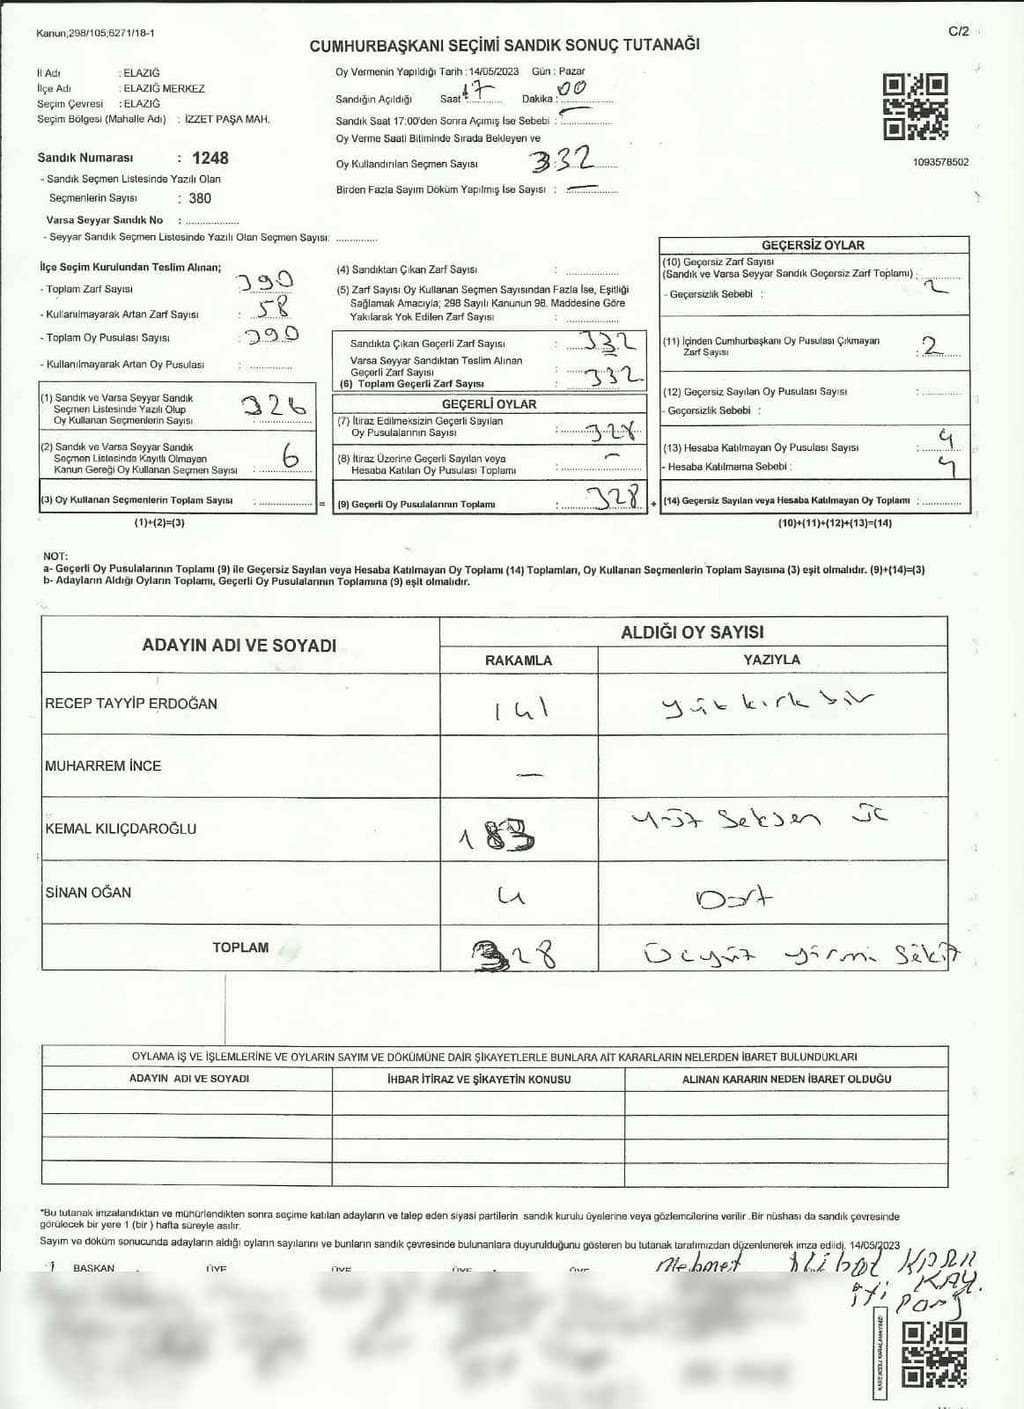 Kanun,298/105;6271/18-1
C/2
CUMHURBAŞKANI SEÇİMİ SANDIK SONUÇ TUTANAĞI
İl Adı : ELAZIĞ
İlçe Adı : ELAZIĞ MERKEZ
Seçim Çevresi : ELAZIĞ
Seçim Bölgesi (Mahalle Adı) : İZZET PAŞA MAH.
Sandık Numarası : 1248
- Sandık Seçmen Listesinde Yazılı Olan
Seçmenlerin Sayısı : 380
Varsa Seyyar Sandık No : ..................
- Seyyar Sandık Seçmen Listesinde Yazılı Olan Seçmen Sayısı: ..............
Oy Vermenin Yapıldığı Tarih : 14/05/2023 Gün : Pazar
Sandığın Açıldığı Saat 17 Dakika : 00
Sandık Saat 17:00'den Sonra Açımış İse Sebebi : —
Oy Verme Saati Bitiminde Sırada Bekleyen ve
Oy Kullandırılan Seçmen Sayısı 332
Birden Fazla Sayım Döküm Yapılmış İse Sayısı : —
1093578502
İlçe Seçim Kurulundan Teslim Alınan;
- Toplam Zarf Sayısı : 390
- Kullanılmayarak Artan Zarf Sayısı : 58
- Toplam Oy Pusulası Sayısı : 390
- Kullanılmayarak Artan Oy Pusulası : ..............
(1) Sandık ve Varsa Seyyar Sandık
Seçmen Listesinde Yazılı Olup
Oy Kullanan Seçmenlerin Sayısı : 326
(2) Sandık ve Varsa Seyyar Sandık
Seçmen Listesinde Kayıtlı Olmayan
Kanun Gereği Oy Kullanan Seçmen Sayısı : 6
(3) Oy Kullanan Seçmenlerin Toplam Sayısı : ..............
(1)+(2)=(3)
=
(4) Sandıktan Çıkan Zarf Sayısı : ..............
(5) Zarf Sayısı Oy Kullanan Seçmen Sayısından Fazla İse, Eşitliği
Sağlamak Amacıyla; 298 Sayılı Kanunun 98. Maddesine Göre
Yakılarak Yok Edilen Zarf Sayısı : ..............
Sandıkta Çıkan Geçerli Zarf Sayısı : 332
Varsa Seyyar Sandıktan Teslim Alınan
Geçerli Zarf Sayısı :
(6) Toplam Geçerli Zarf Sayısı : 332
GEÇERLİ OYLAR
(7) İtiraz Edilmeksizin Geçerli Sayılan
Oy Pusulalarının Sayısı : 328
(8) İtiraz Üzerine Geçerli Sayılan veya
Hesaba Katılan Oy Pusulası Toplamı : —
(9) Geçerli Oy Pusulalarının Toplamı : 328
+
GEÇERSİZ OYLAR
(10) Geçersiz Zarf Sayısı
(Sandık ve Varsa Seyyar Sandık Geçersiz Zarf Toplamı) : 2
- Geçersizlik Sebebi :
(11) İçinden Cumhurbaşkanı Oy Pusulası Çıkmayan
Zarf Sayısı : 2
(12) Geçersiz Sayılan Oy Pusulası Sayısı : ..............
- Geçorsizlik Sebebi :
(13) Hesaba Katılmayan Oy Pusulası Sayısı : 4
- Hesaba Katılmama Sebebi : 4
(14) Geçersiz Sayılan veya Hesaba Katılmayan Oy Toplamı : ............
(10)+(11)+(12)+(13)=(14)
NOT:
a- Geçerli Oy Pusulalarının Toplamı (9) ile Geçersiz Sayılan veya Hesaba Katılmayan Oy Toplamı (14) Toplamları, Oy Kullanan Seçmenlerin Toplam Sayısına (3) eşit olmalıdır. (9)+(14)=(3)
b- Adayların Aldığı Oyların Toplamı, Geçerli Oy Pusulalarının Toplamına (9) eşit olmalıdır.
ADAYIN ADI VE SOYADI
ALDIĞI OY SAYISI
RAKAMLA YAZIYLA
RECEP TAYYİP ERDOĞAN 141 yüz kırk bir
MUHARREM İNCE —
KEMAL KILIÇDAROĞLU 183 yüz seksen üç
SİNAN OĞAN 4 Dört
TOPLAM 328 Üçyüz yirmi sekiz
OYLAMA İŞ VE İŞLEMLERİNE VE OYLARIN SAYIM VE DÖKÜMÜNE DAİR ŞİKAYETLERLE BUNLARA AİT KARARLARIN NELERDEN İBARET BULUNDUKLARI
ADAYIN ADI VE SOYADI İHBAR İTİRAZ VE ŞİKAYETİN KONUSU ALINAN KARARIN NEDEN İBARET OLDUĞU
*Bu tutanak imzalandıktan ve mühürlendikten sonra seçime katılan adayların ve talep eden siyasi partilerin sandık kurulu üyelerine veya gözlemcilerine verilir .Bir nüshası da sandık çevresinde
görülecek bir yere 1 (bir ) hafta süreyle asılır.
Sayım ve döküm sonucunda adayların aldığı oyların sayılarını ve bunların sandık çevresinde bulunanlara duyurulduğunu gösteren bu tutanak tarafımızdan düzenlenerek imza edildi. 14/05/2023
BAŞKAN ÜYE ÜYE ÜYE ÜYE Mehmet